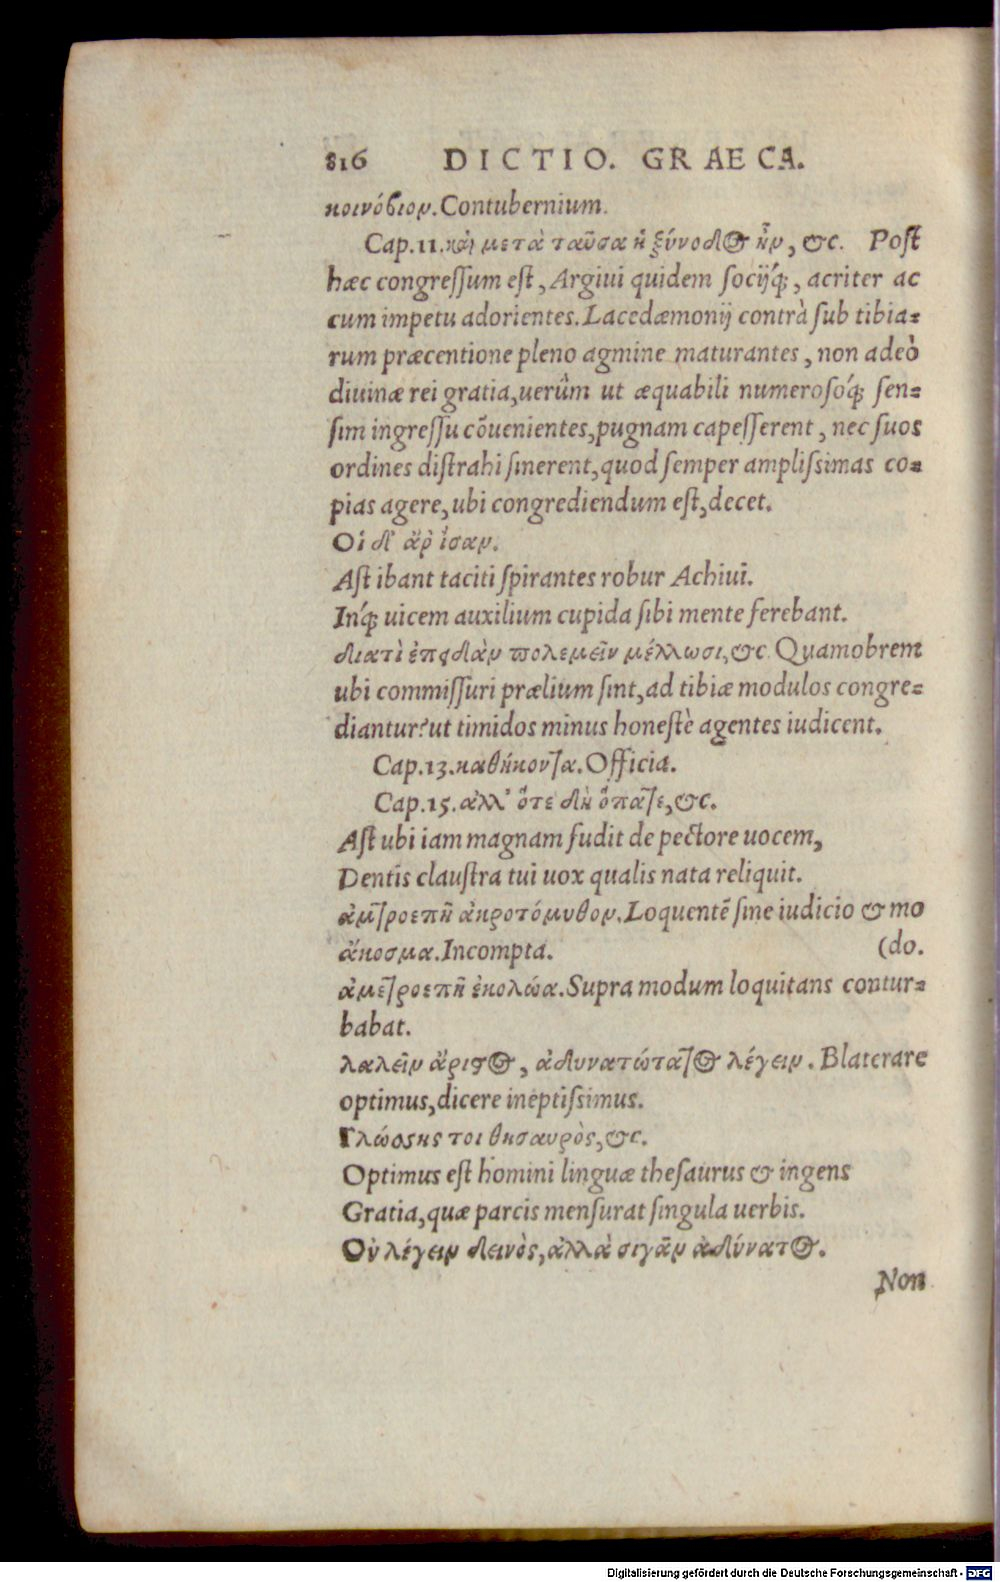 816 DICTIO. GRAECA.
κοινόβιον. Contubernium.
Cap.11. καὶ μετὰ ταῦτα ἡ ξύνοδος ἦν, &c. Post
hæc congreſſum eſt, Argiui quidem ſocijq́;, acriter ac
cum impetu adorientes. Lacedæmonij contrà ſub tibia=
rum præcentione pleno agmine maturantes, non adeò
diuinæ rei gratia, uerùm ut æquabili numeroſoq́; ſen=
ſim ingreſſu cōuenientes, pugnam capeſſerent, nec ſuos
ordines diſtrahi ſinerent, quod ſemper ampliſsimas co=
pias agere, ubi congrediendum eſt, decet.
Οἱ δ' ἄρ' ἴσαν.
Aſt ibant taciti ſpirantes robur Achiui.
Inq́; uicem auxilium cupida ſibi mente ferebant.
διατὶ ἐπειδὰν πολεμεῖν μέλλωσι, &c. Quamobrem
ubi commiſſuri prælium ſint, ad tibiæ modulos congre=
diantur? ut timidos minus honeſtè agentes iudicent.
Cap.13. καθήκοντα. Officia.
Cap.15. ἀλλ' ὅτε δὴ ὄπατε, &c.
Aſt ubi iam magnam fudit de pectore uocem,
Dentis clauſtra tui uox qualis nata reliquit.
ἀμετροεπῆ ἀκροτόμυθον. Loquentē ſine iudicio & mo
ἄκοσμα. Incompta. (do.
ἀμετροεπῆ ἐκολώα. Supra modum loquitans contur=
babat.
λαλεῖν ἄριστος, ἀδυνατώτατος λέγειν. Blaterare
optimus, dicere ineptiſsimus.
Γλώσσης τοι θησαυρὸς, &c.
Optimus eſt homini linguæ theſaurus & ingens
Gratia, quæ parcis menſurat ſingula uerbis.
Οὐ λέγειν δεινὸς, ἀλλὰ σιγᾶν ἀδύνατος.
Non
Digitalisierung gefördert durch die Deutsche Forschungsgemeinschaft - DFG